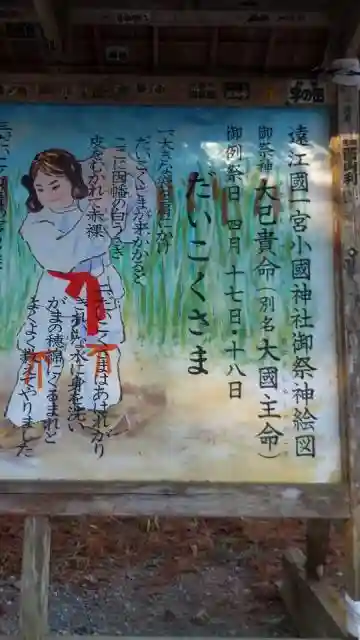 遠江國一宮小國神社御祭神絵図
御祭神 大己貴命(別名 大國主命)
御例祭日 四月 十七日・十八日
だいこくさま
一、大きな袋を肩にかけ
だいこくさまが来かかると
ここに因幡の白うさぎ
皮をむかれて赤裸
二、だいこくさまはあはれがり
きれいな水に身を洗い
がまの穂綿にくるまれと
よくよく教えてやりました